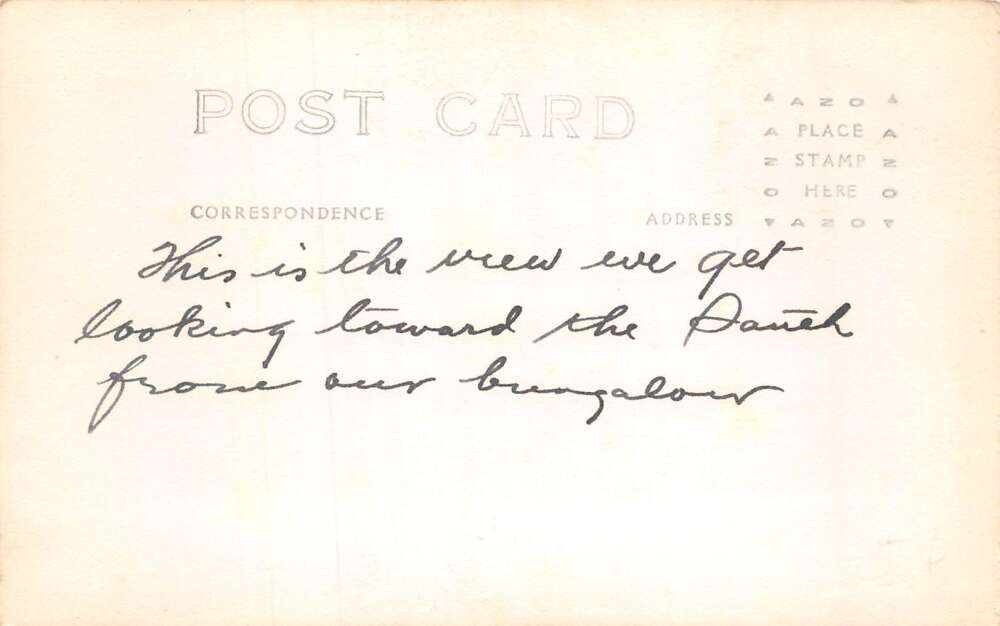 POST CARD
▲ A Z O ▲
A PLACE A
Z STAMP Z
O HERE O
▼ A Z O ▼
CORRESPONDENCE
ADDRESS
This is the view we get
looking toward the South
from our bungalow